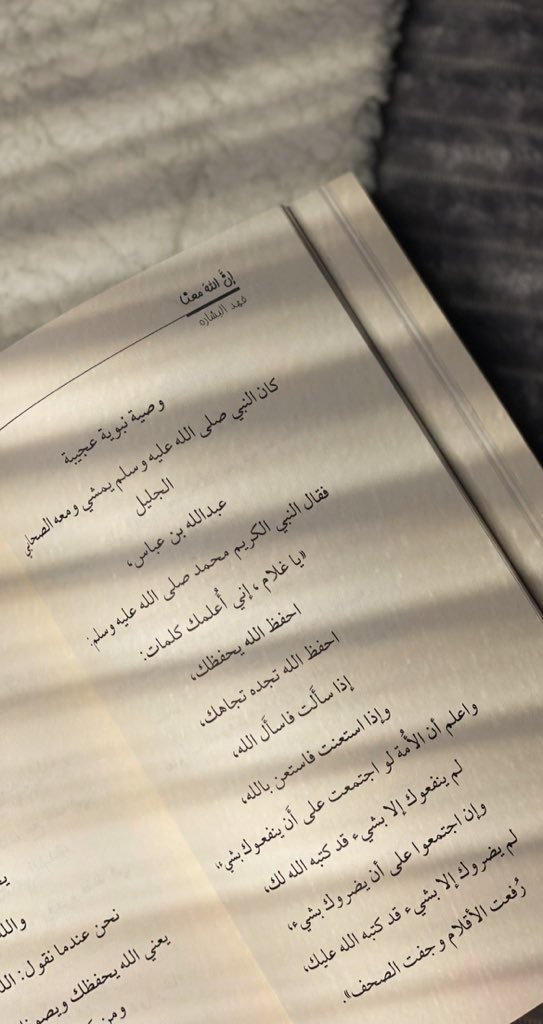 إنَّ الله معنا
فهد البشاره
وصية نبوية عجيبة
كان النبي صلى الله عليه وسلم يمشي ومعه الصحابي
الجليل
عبدالله بن عباس،
فقال النبي الكريم محمد صلى الله عليه وسلم:
«يا غلام، إني أُعلمك كلمات:
احفظ الله يحفظك،
احفظ الله تجده تجاهك،
إذا سأَلت فاسأَل الله،
وإذا استعنت فاستعن بالله،
واعلم أن الأُمة لو اجتمعت على أَن ينفعوك بشيء،
لم ينفعوك إلا بشيء قد كتبه الله لك،
وإن اجتمعوا على أن يضروك بشيء،
لم يضروك إلا بشيء قد كتبه الله عليك،
رُفعت الأقلام وجفت الصحف».
نحن عندما نقول: الله
يعني الله يحفظك